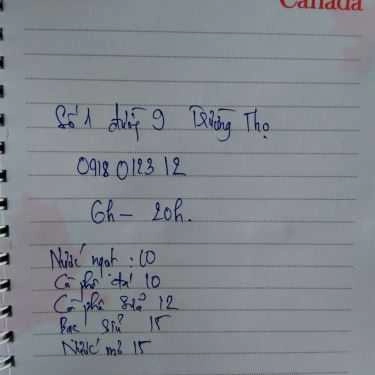 Canada
Số 1 đường 9 Trường Thọ
0918 0123 12
6h - 20h.
Nước ngọt : 10
Cà phê đá 10
Cà phê sữa 12
Bạc sỉu 15
Nước mơ 15